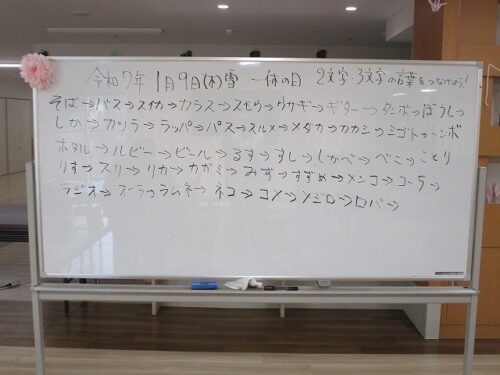 令和7年 1月9日(木)雪 一休の日 2文字・3文字の言葉をつなげよう!
そば→バス→スイカ→カラス→スモウ→ウサギ→ギター→タンボ→ぼうし→
しか→カツラ→ラッパ→パス→スルメ→メダカ→カカシ→ミゴト→トンボ
ホタル→ルビー→ビール→るす→すし→しかべ→べこ→ことり
りす→スリ→リカ→カガミ→みず→すずめ→メンコ→コーラ→
ラジオ→ラムネ→ネコ→コメ→メジロ→ロバ→